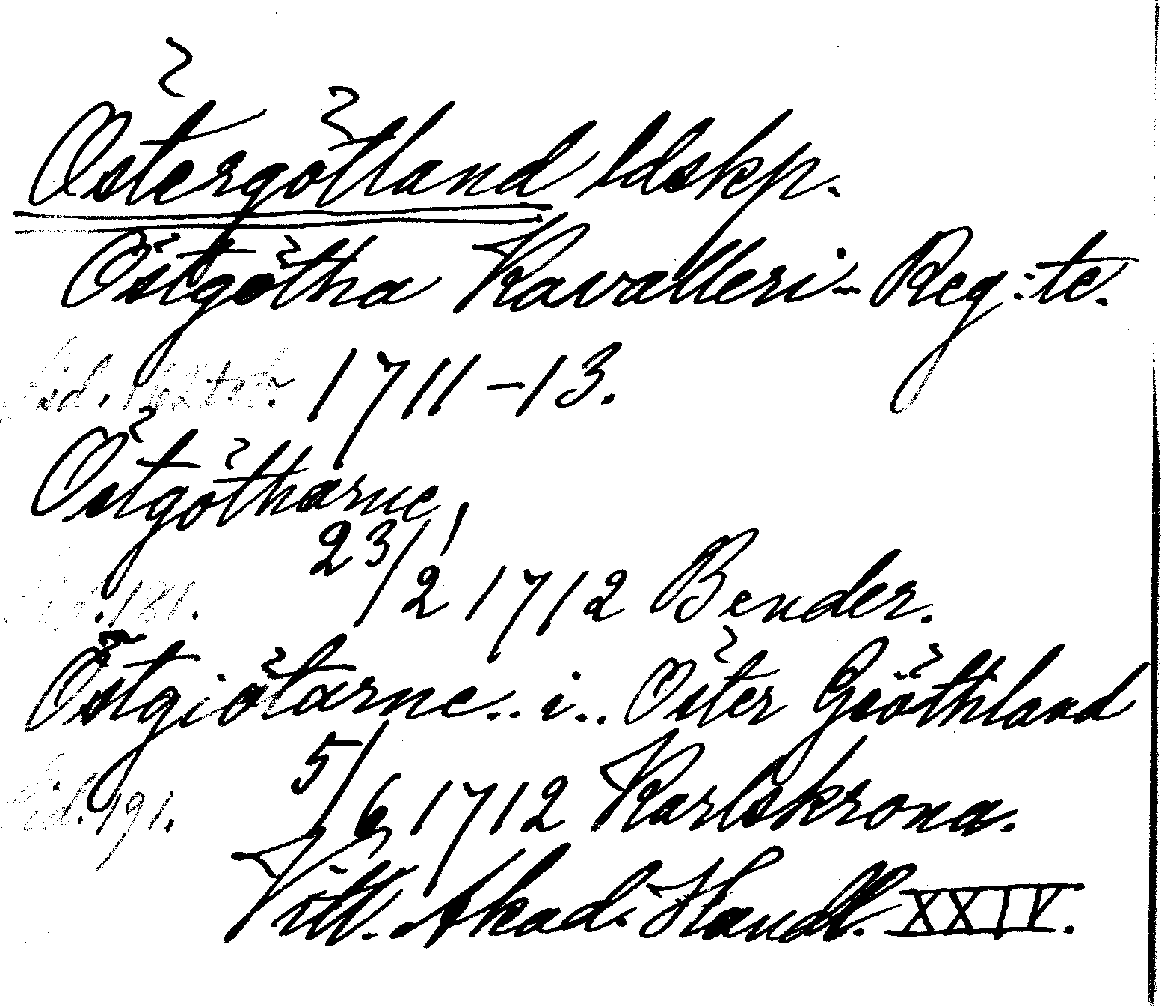 Östergötland ldskp.
Östgötha Kavalleri-Reg:te.
Sid. 162 1711-13.
Östgötharne,
Sid. 181. 23/2 1712 Bender.
Östgiötarne.. i.. Öster Giöthland
Sid. 191. 5/6 1712 Karlskrona.
Vitt. Akad. Handl. XXIV.